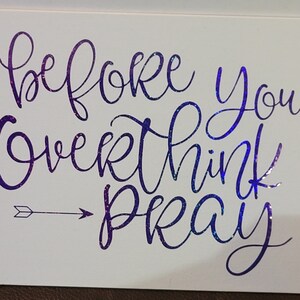 before you
overthink
PRAY